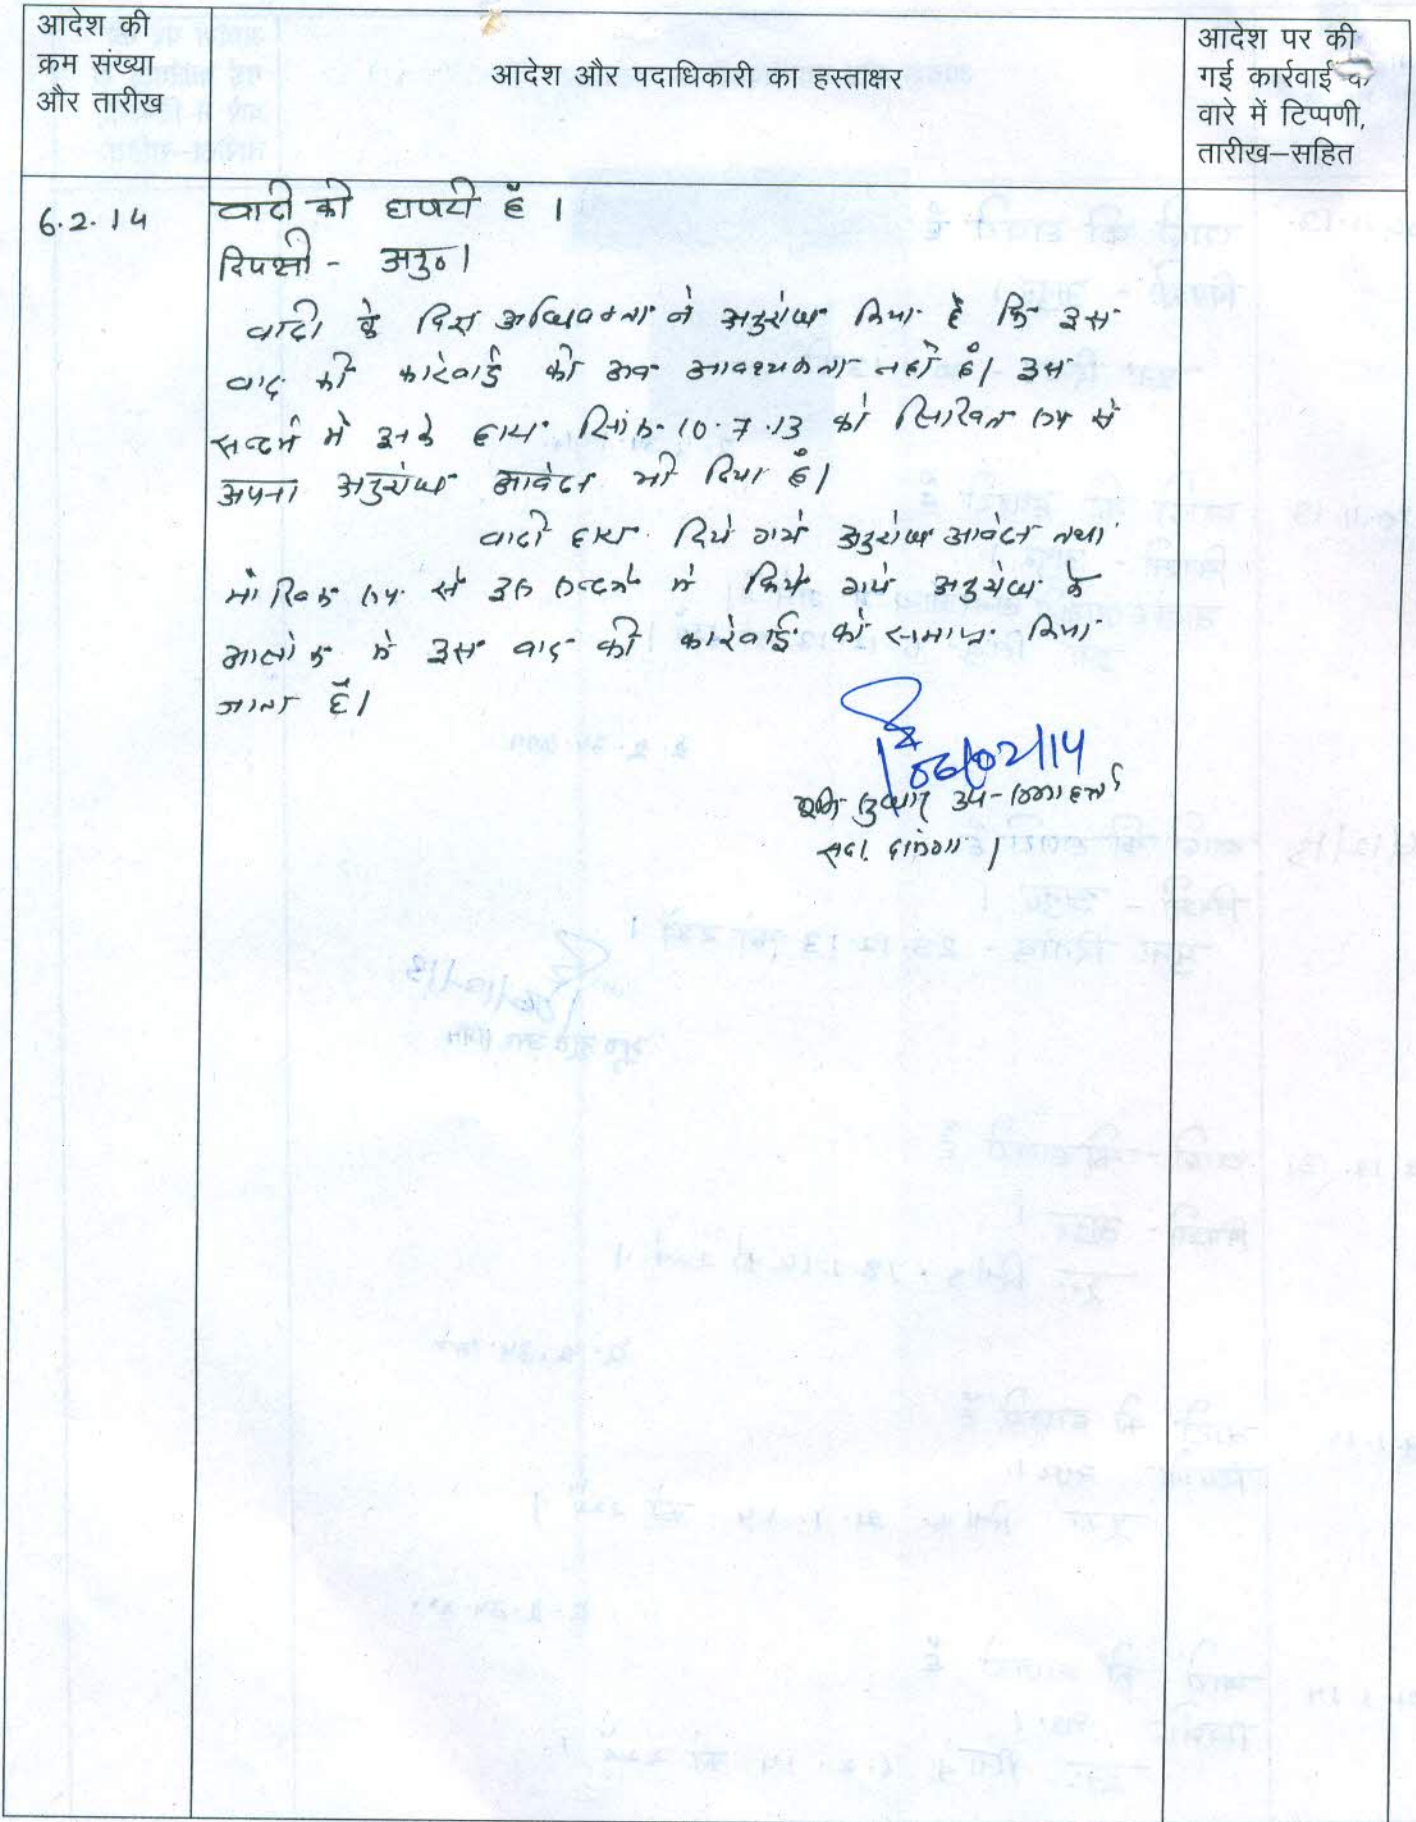 आदेश की
क्रम संख्या
और तारीख
आदेश और पदाधिकारी का हस्ताक्षर
आदेश पर की
गई कार्रवाई के
वारे में टिप्पणी,
तारीख–सहित
6.2.14
वादी की हाजरी है ।
विपक्षी - अनु० ।
वादी के विज्ञ अधिवक्ता ने अनुरोध किया है कि इस
वाद की कारवाई की अब आवश्यकता नहीं है। इस
सन्दर्भ में इनके द्वारा दिनांक 10.7.13 को लिखित रूप से
अपना अनुरोध आवेदन भी दिया है।
वादी द्वारा दिये गये अनुरोध आवेदन तथा
मौखिक रूप से इस सन्दर्भ में किये गये अनुरोध के
आलोक में इस वाद की कारवाई को समाप्त किया
जाता है।
06/02/14
भूमि सुधार उप-समाहर्ता
सदर दरभंगा ।